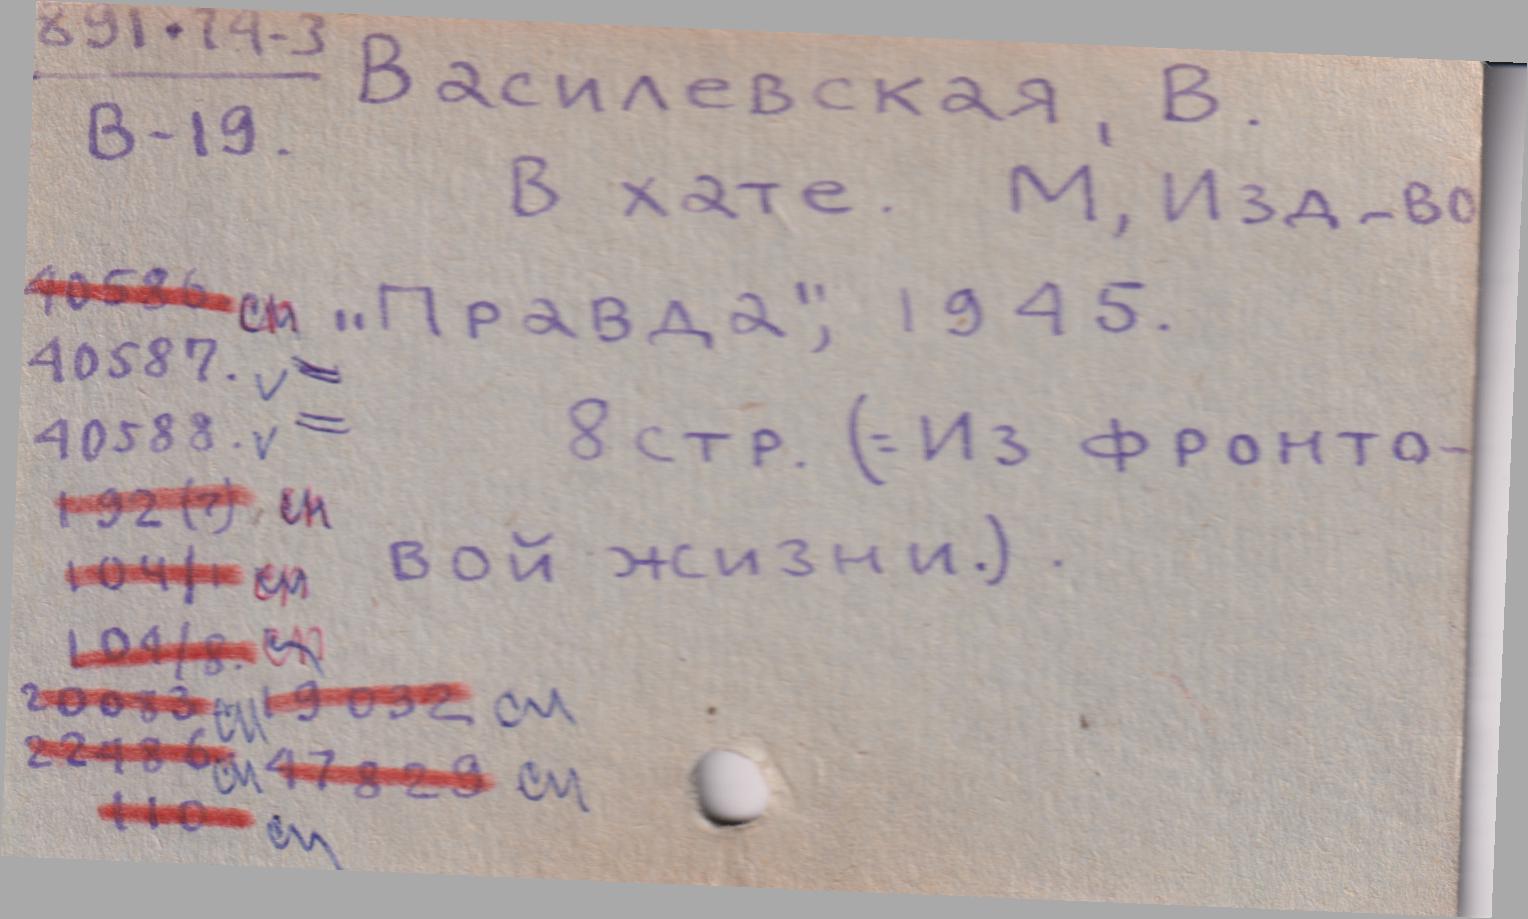 891.74-3
В-19.
Василевская, В.
В хате. М, Изд-во
„Правда", 1945.
8 стр. (= Из фронто-
вой жизни.).
40586 сп
40587. v =
40588. v =
192(?) сп
104/1 сп
104/8. сп
20083 сп 19032 сп
22486 сп 47829 сп
110 сп